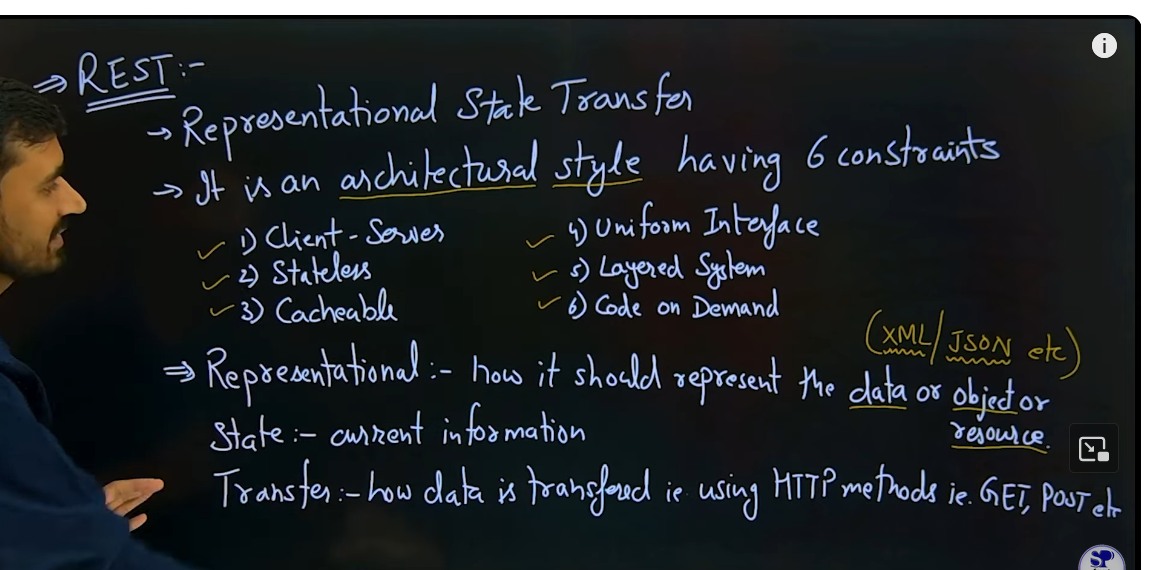 ⇒ REST:-
→ Representational State Transfer
→ It is an architectural style having 6 constraints
1) Client-Server
2) Stateless
3) Cacheable
4) Uniform Interface
5) Layered System
6) Code on Demand
(XML/JSON etc)
⇒ Representational :- how it should represent the data or object or
resource.
State :- current information
Transfer :- how data is transfered ie. using HTTP methods ie. GET, POST etc
SP